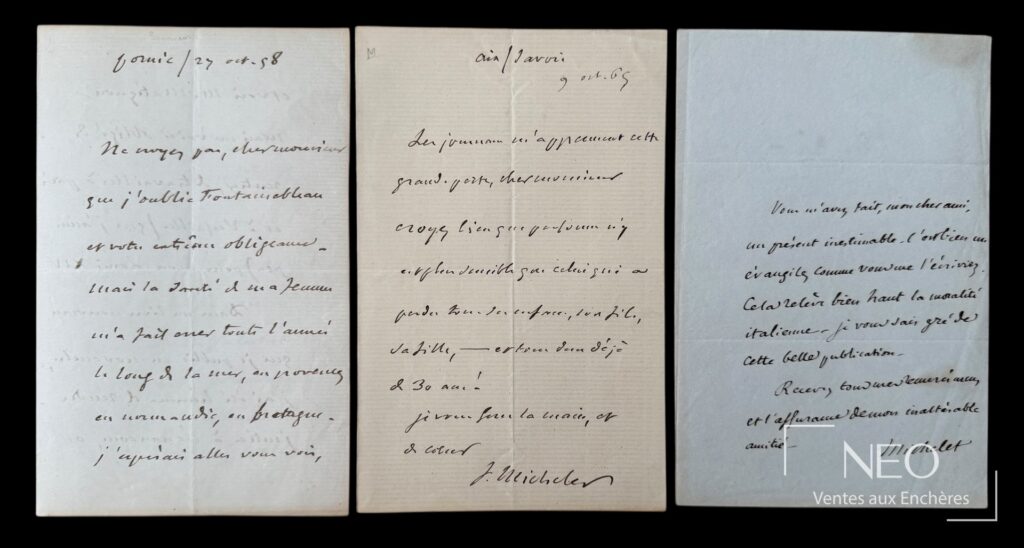 pornic / 27 oct. 58
Ne croyez pas, cher monsieur
que j'oublie Fontainebleau
et votre extrême obligeance –
mais la santé de ma femme
m'a fait errer toute l'année
le long de la mer, en provence,
en normandie, en bretagne –
j'espérais aller vous voir,
M
aix / Savoie
9 oct. 65
Les journaux m'apprennent cette
grande perte, cher monsieur
croyez bien que personne n'y
est plus sensible que celui qui a
perdu tous ses enfans, son fils,
sa fille, — et tous deux déjà
de 30 ans !
je vous serre la main, et
de cœur
J. Michelet
Vous m'avez fait, mon cher ami,
un présent inestimable. C'est bien un
évangile, comme vous me l'écriviez.
Cela relève bien haut la moralité
italienne – je vous sais gré de
cette belle publication –
Recevez tous mes remerciemens
et l'assurance de mon inaltérable
amitié –
J Michelet
NEO
Ventes aux Enchères